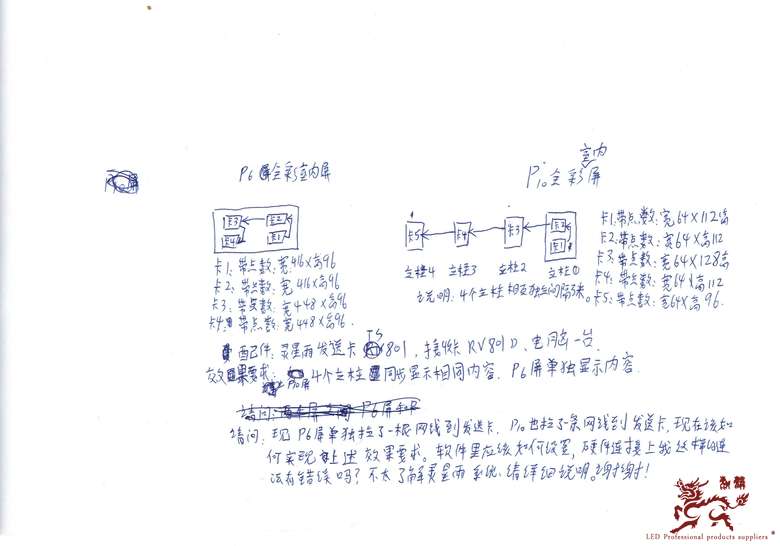 P6 全彩室内屏
室内
P10全彩屏
卡3 卡2
卡4 卡1
卡5 卡4 卡3 卡2
卡1
立柱4 立柱3 立柱2 立柱①
说明:4个立柱相互独立间隔3米。
卡1:带点数:宽416×高96
卡2:带点数:宽416×高96
卡3:带点数:宽448×高96
卡4:带点数:宽448×高96
卡1:带点数:宽64×112高
卡2:带点数:宽64×高112
卡3:带点数:宽64×128高
卡4:带点数:宽64×高112
卡5:带点数:宽64×高96.
配件:灵星雨发送卡TS801,接收卡RV801D、电脑一台
效果要求:P10屏4个立柱同步显示相同内容. P6屏单独显示内容.
请问:现P6屏单独拉了一根网线到发送卡. P10也拉了一条网线到发送卡,现在该如
何实现上述效果要求。软件里应该如何设置,硬件连接上我这样的连
法有错误吗?不太了解灵星雨系统,请详细说明。谢谢!
LED Professional products suppliers